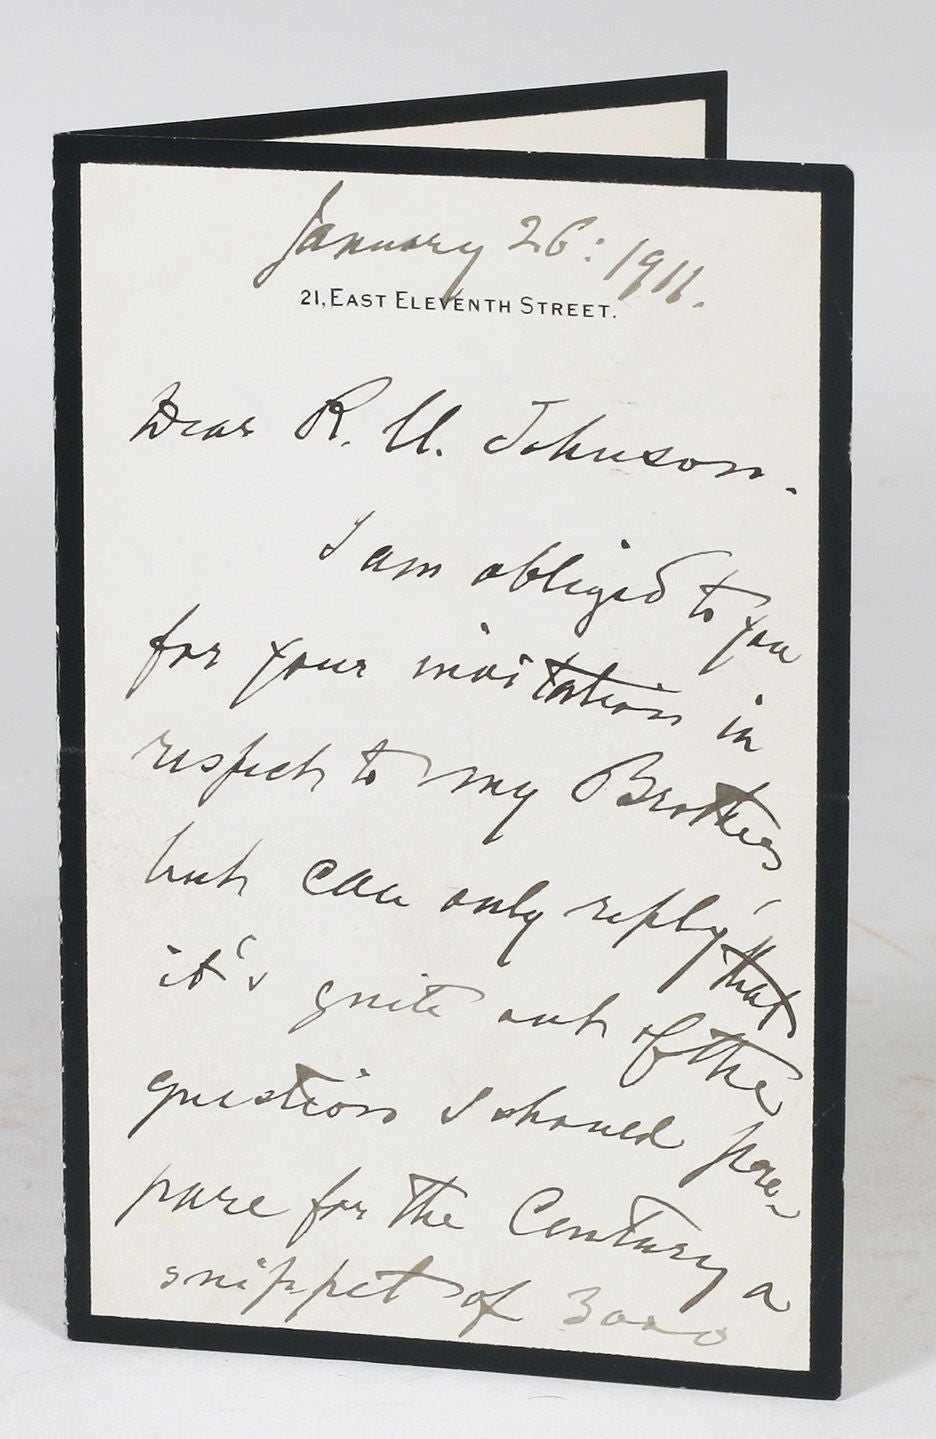 January 26: 1911.
21, EAST ELEVENTH STREET.
Dear R. U. Johnson.
I am obliged to you
for your invitation in
respect to my Brothers
but can only reply that
it's quite out of the
question I should pre-
pare for the Century a
snippet of 3000